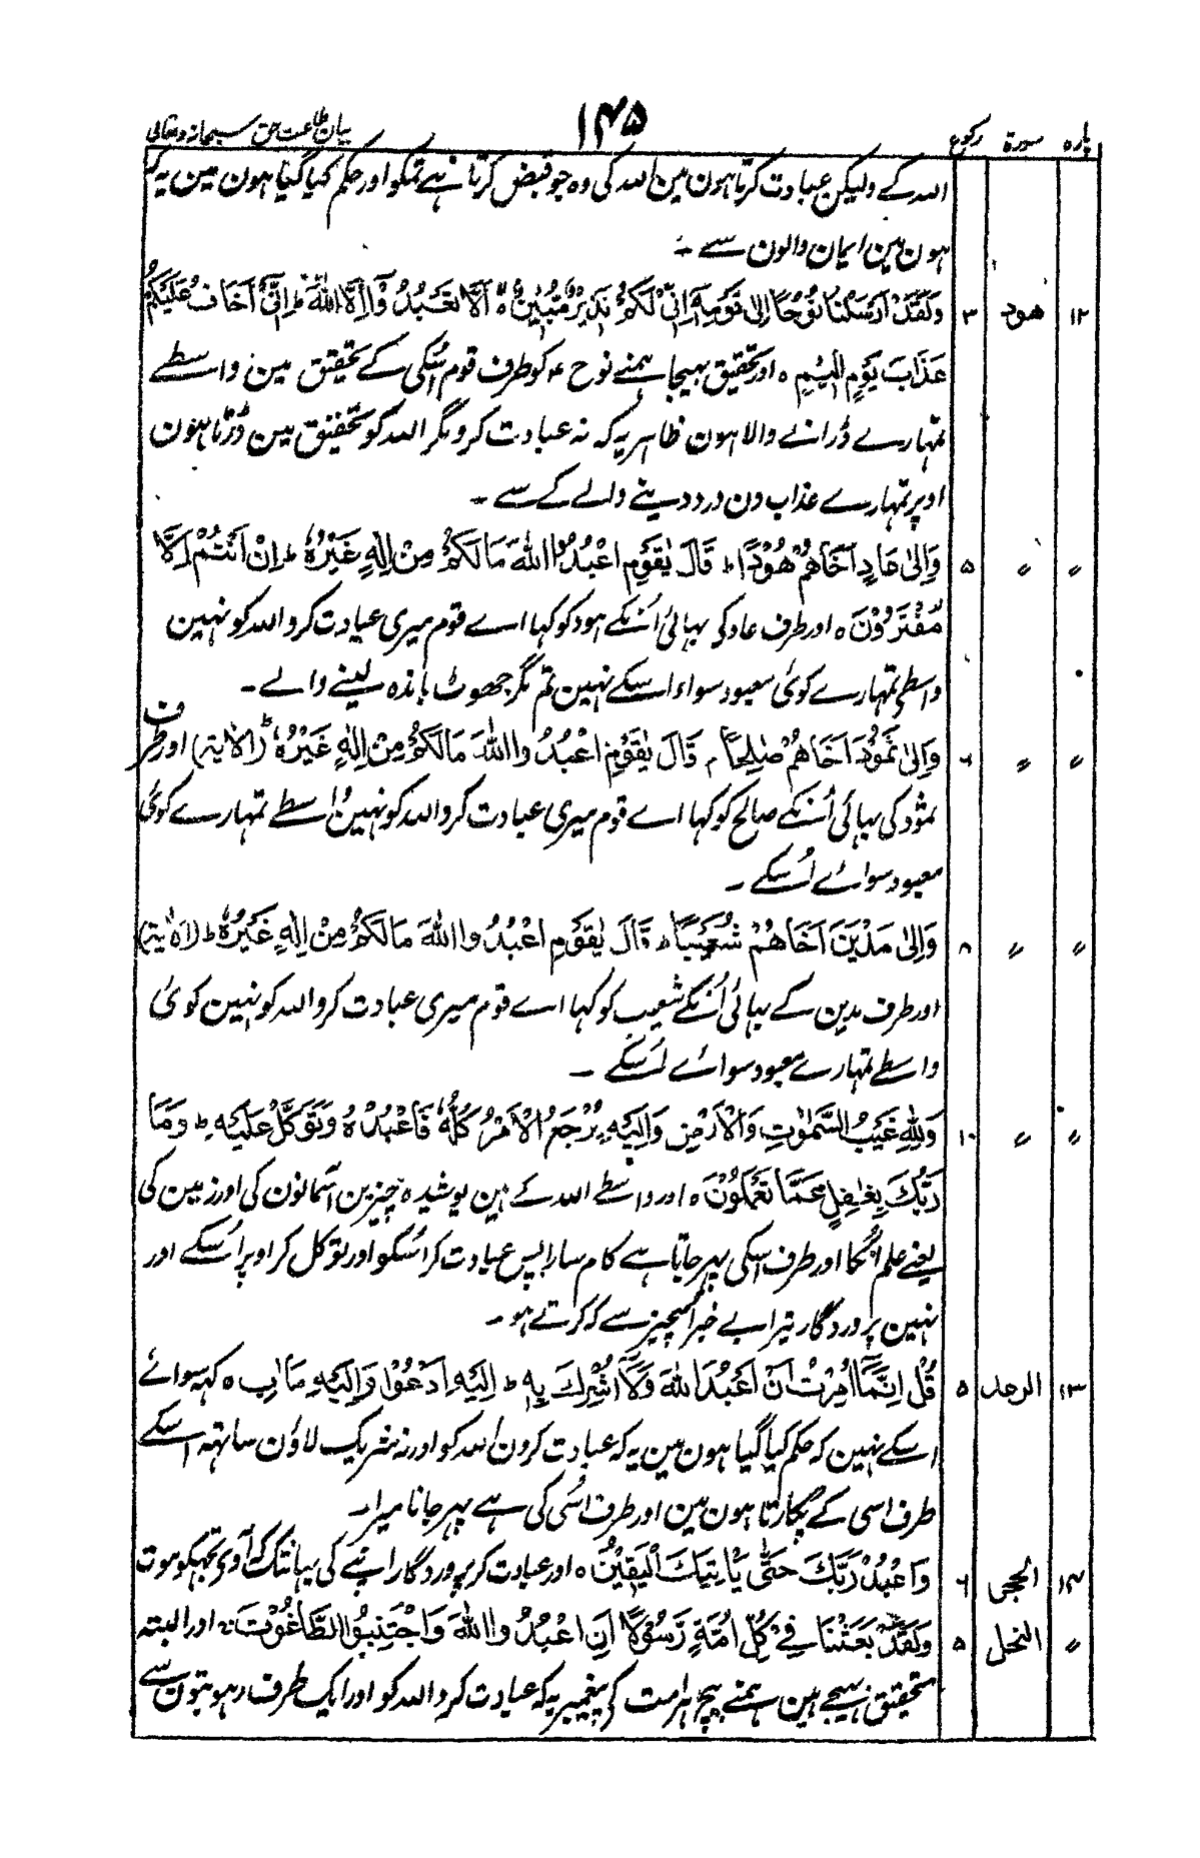 پارہ سورۃ رکوع ۱۴۵ بیان طاعت حق سبحانہ وتعالی
اللہ کے ولیکن عبادت کرتا ہون مین اللہ کی وہ جو قبض کرتا ہے تمکو اور حکم کیا گیا ہون مین یہ کہ
ہون مین ایمان والون سے ۔
۱۲ ھود ۳ وَلَقَدْ اَرْسَلْنَا نُوْحًا اِلٰی قَوْمِہٖ اِنِّیْ لَکُمْ نَذِیْرٌ مُّبِیْنٌ ہ اَلَّا تَعْبُدُوْٓا اِلَّا اللّٰہَ ط اِنِّیْٓ اَخَافُ عَلَیْکُمْ
عَذَابَ یَوْمٍ اَلِیْمٍ ہ اور تحقیق بہیجا ہمنے نوح ؑ کو طرف قوم اُسکی کے تحقیق مین واسطے
تمہارے ڈرانے والا ہون ظاہر یہ کہ نہ عبادت کرو مگر اللہ کو تحقیق مین ڈرتا ہون
اوپر تمہارے عذاب دن درد دینے والے کے سے ۔
〃 〃 ۵ وَاِلٰی عَادٍ اَخَاھُمْ ھُوْدًا ط قَالَ یٰقَوْمِ اعْبُدُوا اللّٰہَ مَا لَکُمْ مِنْ اِلٰہٍ غَیْرُہٗ ط اِنْ اَنْتُمْ اِلَّا
مُفْتَرُوْنَ ہ اور طرف عاد کی بہائی اُنکے ہود کو کہا اے قوم میری عبادت کرو اللہ کو نہین
واسطے تمہارے کوئی معبود سواء اسکے نہین تم مگر جھوٹ باندہ لینے والے ۔
〃 〃 ۶ وَاِلٰی ثَمُوْدَ اَخَاھُمْ صٰلِحًا م قَالَ یٰقَوْمِ اعْبُدُوا اللّٰہَ مَا لَکُمْ مِنْ اِلٰہٍ غَیْرُہٗ ط (الاٰیۃ) اور طرف
ثمود کی بہائی اُنکے صالح کو کہا اے قوم میری عبادت کرو اللہ کو نہین واسطے تمہارے کوئی
معبود سوائے اُسکے ۔
〃 〃 ۸ وَاِلٰی مَدْیَنَ اَخَاھُمْ شُعَیْبًا ط قَالَ یٰقَوْمِ اعْبُدُوا اللّٰہَ مَا لَکُمْ مِنْ اِلٰہٍ غَیْرُہٗ ط (الاٰیۃ)
اور طرف مدین کے بہائی اُنکے شعیب کو کہا اے قوم میری عبادت کرو اللہ کو نہین کوئی
واسطے تمہارے معبود سوائے اُسکے ۔
〃 〃 ۱۰ وَلِلّٰہِ غَیْبُ السَّمٰوٰتِ وَالْاَرْضِ وَاِلَیْہِ یُرْجَعُ الْاَمْرُ کُلُّہٗ فَاعْبُدْہُ وَتَوَکَّلْ عَلَیْہِ ط وَمَا
رَبُّکَ بِغٰفِلٍ عَمَّا تَعْمَلُوْنَ ہ اور واسطے اللہ کے ہین پوشیدہ چیزین آسمانون کی اور زمین کی
یعنے علم اُنکا اور طرف اسکی پہر جاتا ہے کام سارا پس عبادت کر اُسکو اور توکل کر اوپر اُسکے اور
نہین پروردگار تیرا بے خبر اُسچیز سے کہ کرتے ہو ۔
۱۳ الرعد ۵ قُلْ اِنَّمَآ اُمِرْتُ اَنْ اَعْبُدَ اللّٰہَ وَلَآ اُشْرِکَ بِہٖ ط اِلَیْہِ اَدْعُوْا وَاِلَیْہِ مَاٰبِ ہ کہہ سوائے
اسکے نہین کہ حکم کیا گیا ہون مین یہ کہ عبادت کرون اللہ کو اور نہ شریک لاؤن ساتہہ اسکے
طرف اسی کے پکارتا ہون مین اور طرف اسُی کی ہے پہر جانا میرا ۔
۱۴ الحجر ۶ وَاعْبُدْ رَبَّکَ حَتّٰی یَاْتِیَکَ الْیَقِیْنُ ہ اور عبادت کر پروردگار اپنے کی یہانتک کہ آوی تجہکو موت
〃 النحل ۵ وَلَقَدْ بَعَثْنَا فِیْ کُلِّ اُمَّۃٍ رَّسُوْلًا اَنِ اعْبُدُوا اللّٰہَ وَاجْتَنِبُوا الطَّاغُوْتَ ج اور البتہ
تحقیق بہیجے ہین ہمنے بیچ ہر امت کی پیغمبر یہ کہ عبادت کرو اللہ کو اور ایک طرف رہو بتون سے